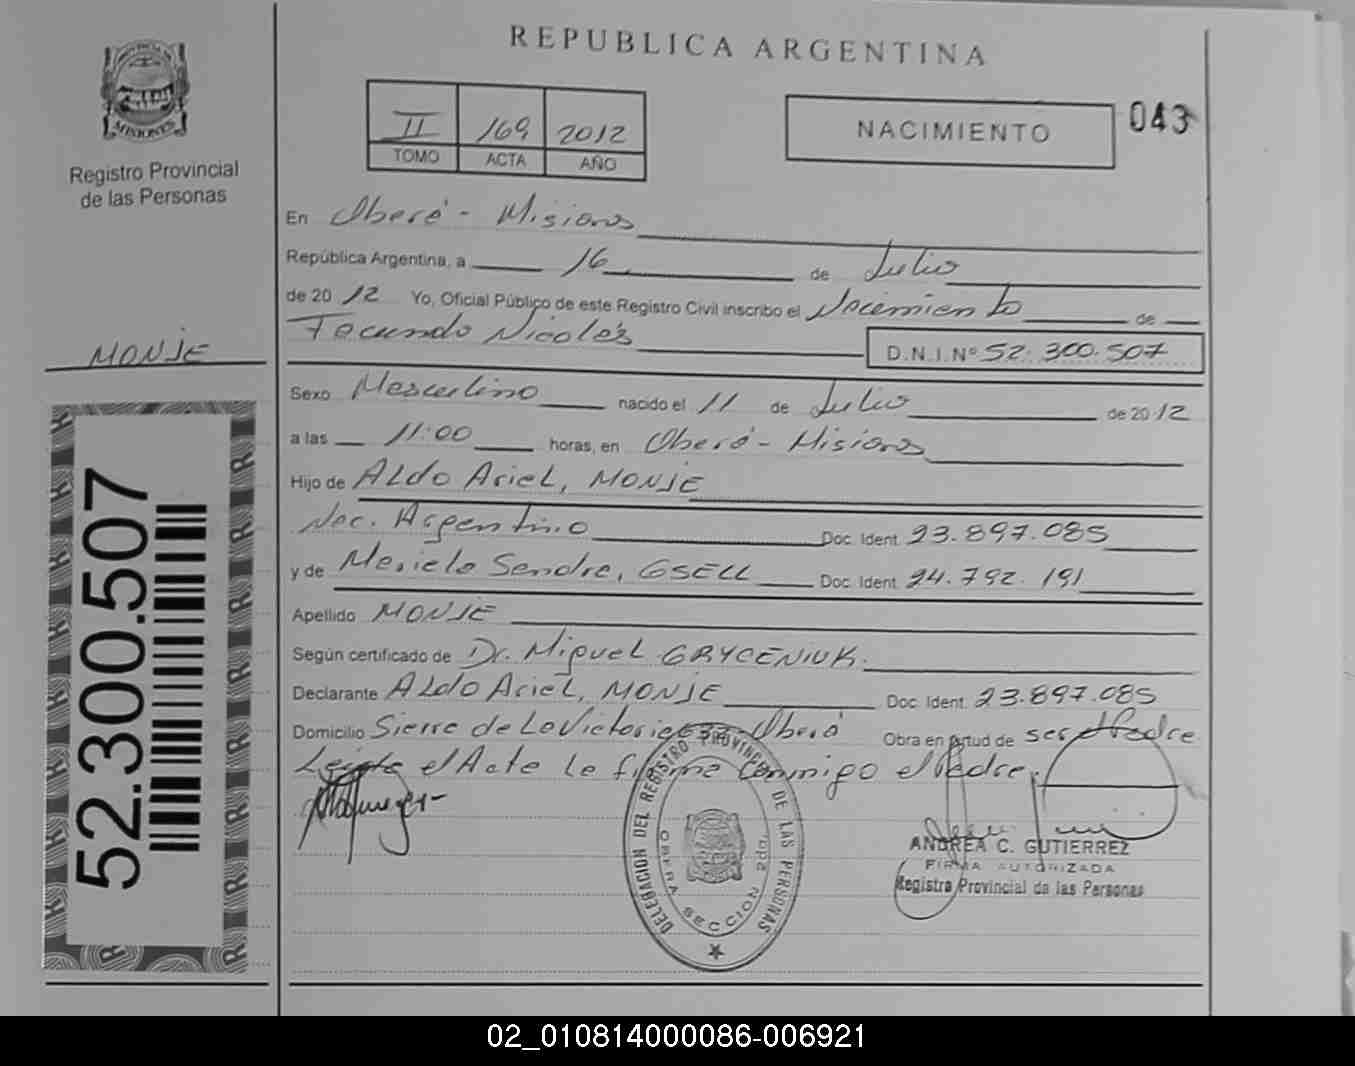 REPUBLICA ARGENTINA
PROVINCIA DE
MISIONES
Registro Provincial
de las Personas
II 169 2012
TOMO ACTA AÑO
NACIMIENTO
043
En Oberá - Misiones
República Argentina, a 16 de Julio
de 2012 Yo, Oficial Público de este Registro Civil inscribo el Nacimiento de
Facundo Nicolás
D.N.I. Nº 52.300.507
MONJE
Sexo Masculino nacido el 11 de Julio de 2012
a las 11:00 horas, en Oberá - Misiones
Hijo de Aldo Ariel, MONJE
Nac. Argentino Doc. Ident. 23.897.085
y de Mariela Sandra, GSELL Doc. Ident. 24.792.191
Apellido MONJE
Según certificado de Dr. Miguel GRYCENIUK.
Declarante Aldo Ariel, MONJE Doc. Ident. 23.897.085
Domicilio Sierra de La Victoria Oberá Obra en virtud de ser el Padre
Leída el Acta la firma conmigo el Padre.
52.300.507
DELEGACION DEL REGISTRO PROVINCIAL DE LAS PERSONAS
OBERA SECCION 2da.
ANDREA C. GUTIERREZ
FIRMA AUTORIZADA
Registro Provincial de las Personas
02_010814000086-006921